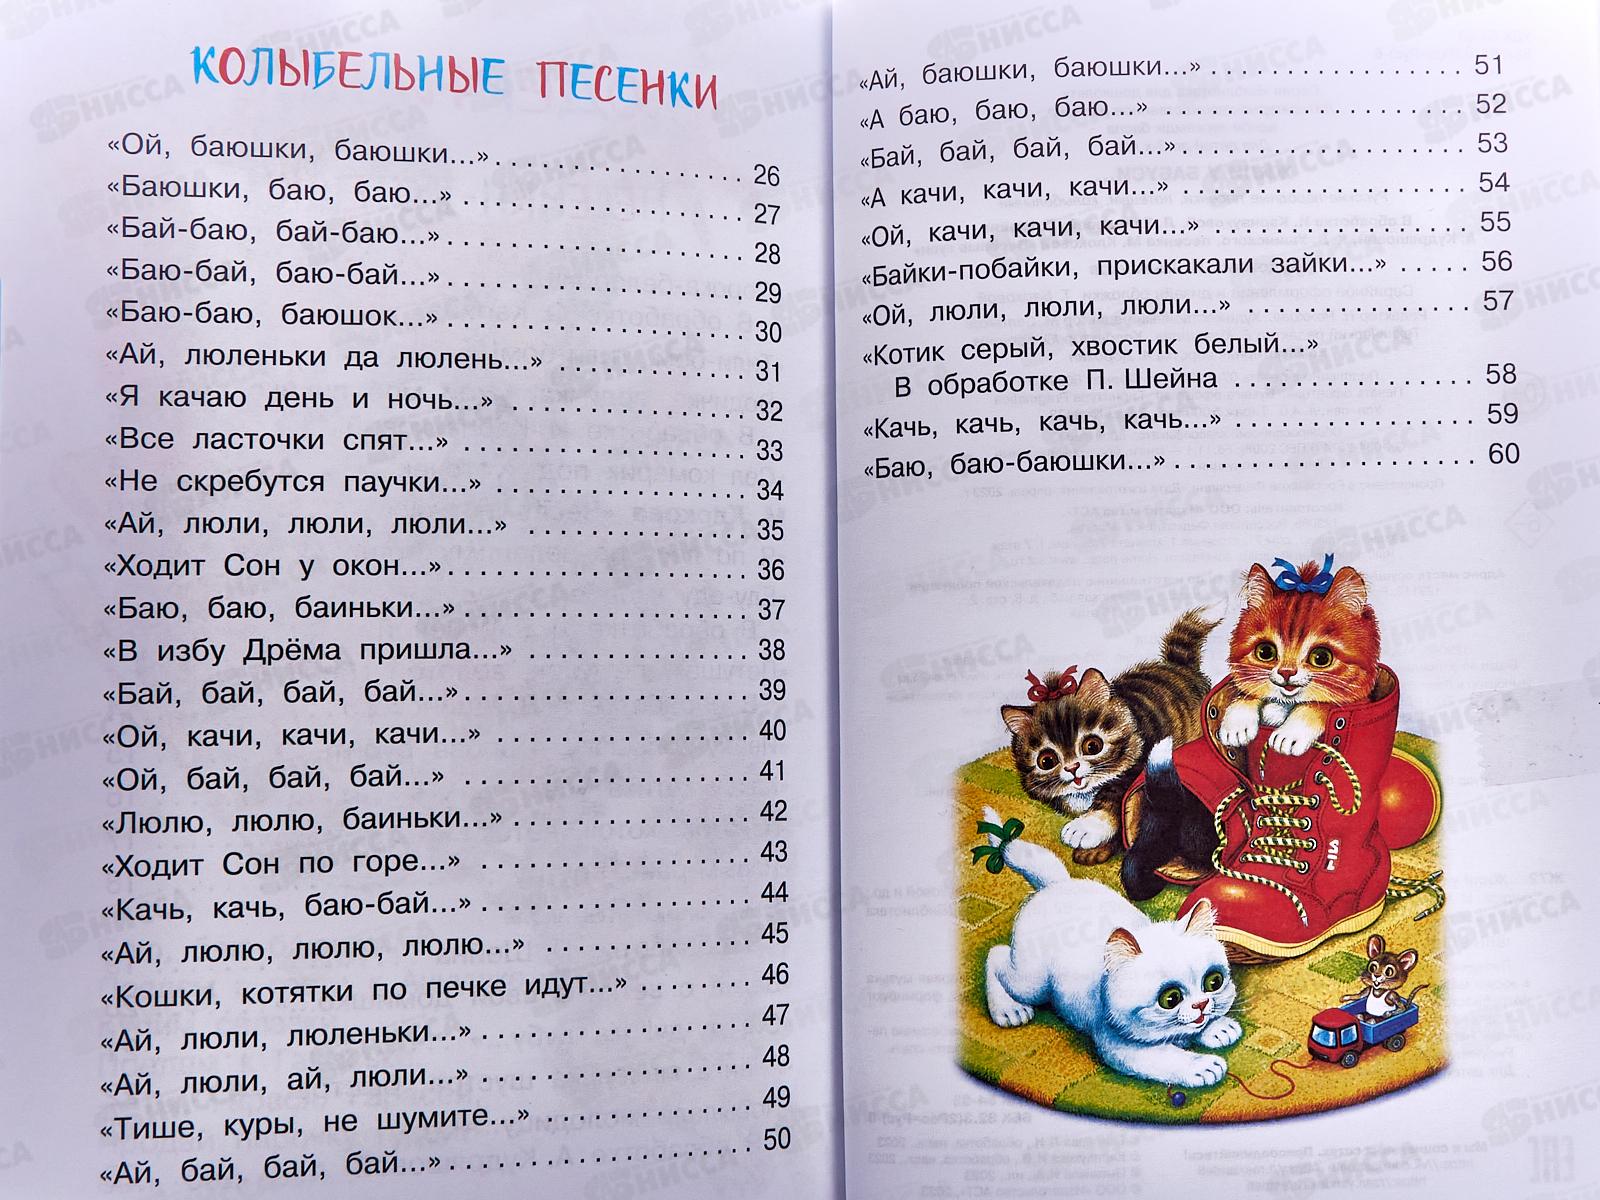 КОЛЫБЕЛЬНЫЕ ПЕСЕНКИ
«Ой, баюшки, баюшки...» 26
«Баюшки, баю, баю...» 27
«Бай-баю, бай-баю...» 28
«Баю-бай, баю-бай...» 29
«Баю-баю, баюшок...» 30
«Ай, люленьки да люлень...» 31
«Я качаю день и ночь...» 32
«Все ласточки спят...» 33
«Не скребутся паучки...» 34
«Ай, люли, люли, люли...» 35
«Ходит Сон у окон...» 36
«Баю, баю, баиньки...» 37
«В избу Дрёма пришла...» 38
«Бай, бай, бай, бай...» 39
«Ой, качи, качи, качи...» 40
«Ой, бай, бай, бай...» 41
«Люлю, люлю, баиньки...» 42
«Ходит Сон по горе...» 43
«Качь, качь, баю-бай...» 44
«Ай, люлю, люлю, люлю...» 45
«Кошки, котятки по печке идут...» 46
«Ай, люли, люленьки...» 47
«Ай, люли, ай, люли...» 48
«Тише, куры, не шумите...» 49
«Ай, бай, бай, бай...» 50
«Ай, баюшки, баюшки...» 51
«А баю, баю, баю...» 52
«Бай, бай, бай, бай...» 53
«А качи, качи, качи...» 54
«Ой, качи, качи, качи...» 55
«Байки-побайки, прискакали зайки...» 56
«Ой, люли, люли, люли...» 57
«Котик серый, хвостик белый...»
В обработке П. Шейна 58
«Качь, качь, качь, качь...» 59
«Баю, баю-баюшки...» 60